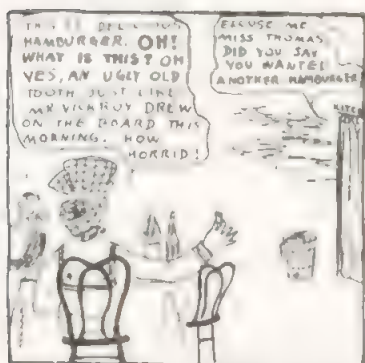 THIS IS DELICIOUS
HAMBURGER. OH!
WHAT IS THIS? OH
YES, AN UGLY OLD
TOOTH JUST LIKE
MR. VICKROY DREW
ON THE BOARD THIS
MORNING. HOW
HORRID!
EXCUSE ME
MISS THOMAS,
DID YOU SAY
YOU WANTED
ANOTHER HAMBURGER